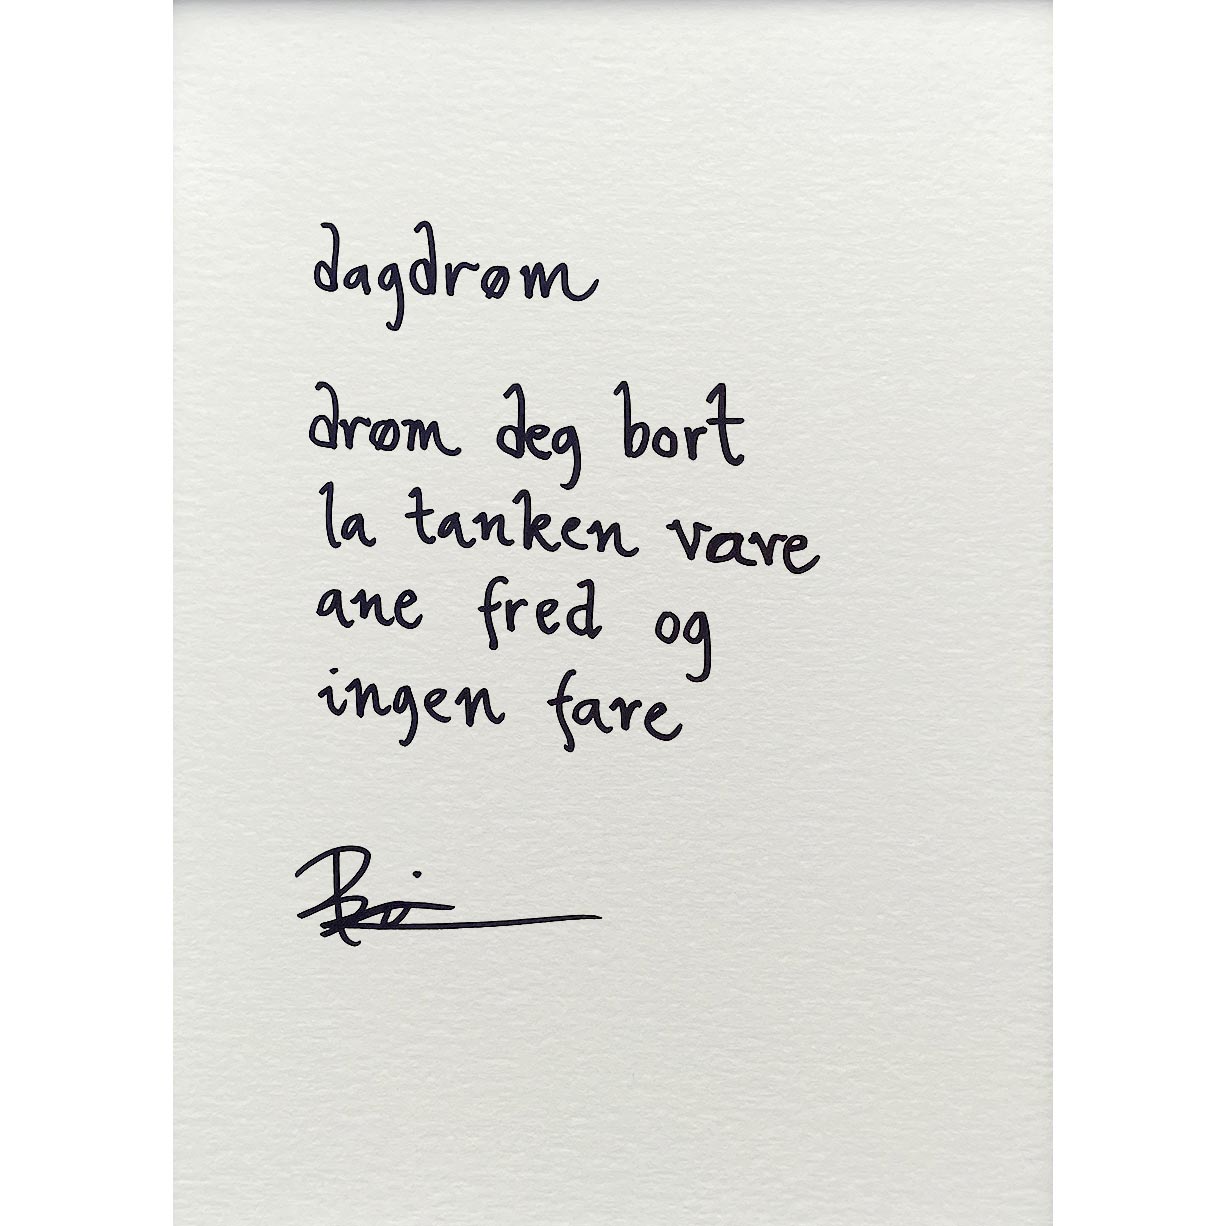 dagdrøm
drøm deg bort
la tanken vare
ane fred og
ingen fare